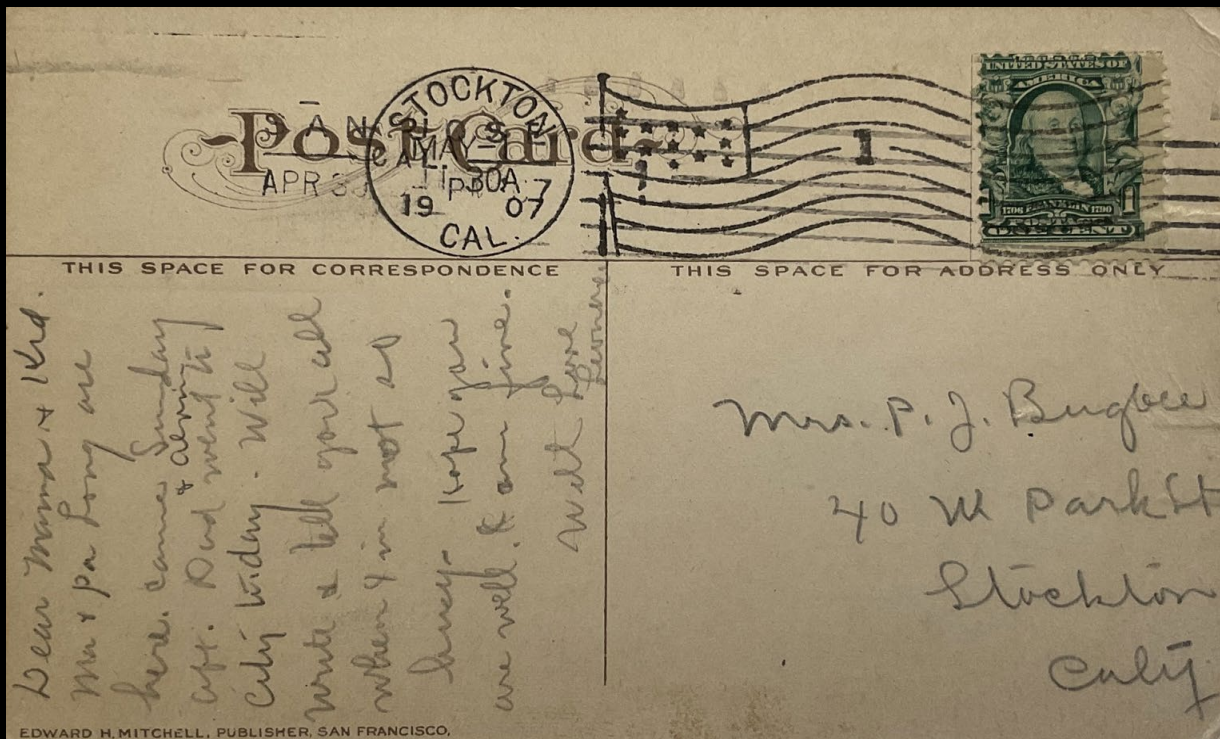 Post Card
SAN JOSE
CAL
APR 30
PM
STOCKTON
MAY
11 30A
1907
CAL.
1
UNITED STATES OF
AMERICA
1706 FRANKLIN 1790
POSTAGE
ONE CENT
THIS SPACE FOR CORRESPONDENCE
THIS SPACE FOR ADDRESS ONLY
Dear Mama & Kid.
Ma & Pa Long are
here. Came Sunday
aft. Dud & went to
City today. Will
write & tell you all
when I'm not so
busy. Hope you
are well. I am fine.
With Love
Mrs. P. J. Bugbee
40 W Park St
Stockton
Calif
EDWARD H. MITCHELL, PUBLISHER, SAN FRANCISCO.